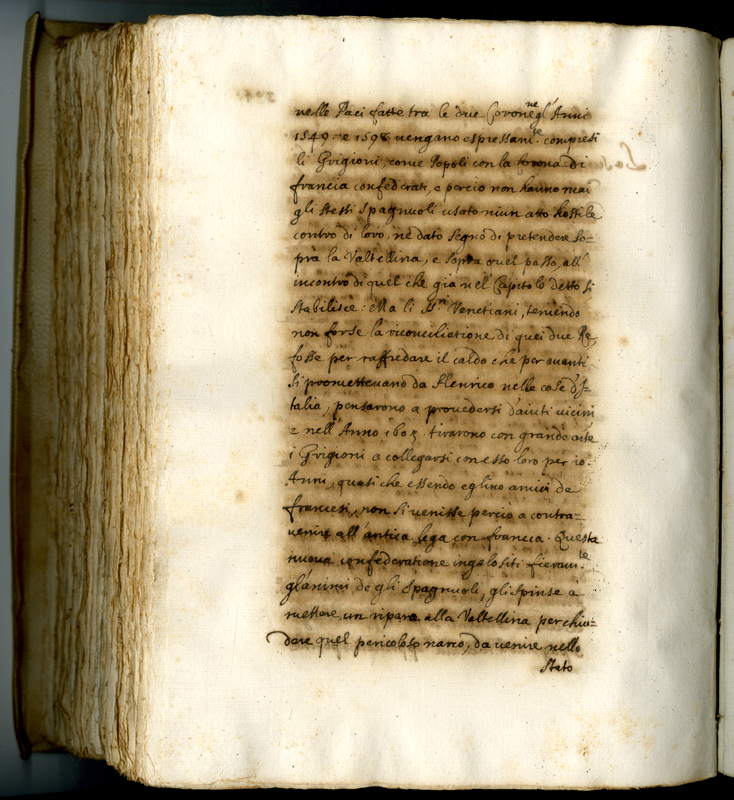 nelle Paci fatte tra le due Corone negl'Anni
1549: e 1598 uengano espressam.te compresi
li Grigioni, come Popoli con la corona di
francia confederati, e percio non hanno mai
gli stessi Spagnuoli usato niun atto hostile
contro di loro, ne dato segno di pretendere so=
pra la Valtellina, e sopra quel passo, all'
incontro di quel che gia nel Capitolo detto si
stabilisce: Ma li SS.ri Venetiani, temendo
non forse la riconciliatione di quei due Re,
fosse per raffredare il caldo che per auanti
si promettevano da Henrico nelle cose d'I=
talia, pensarono a prouedersi d'aiuti uicini
e nell'Anno 1603 tirarono con grande arte
i Grigioni a collegarsi con esso loro per 10:
Anni, quasi che essendo eglino amici de
francesi, non si uenisse percio a contra=
uenire all'antica lega con francia. Questa
nuoua confederatione ingelositi fieram.te
gl'animi degli Spagnuoli, gli spinse a
mettere un riparo alla Valtellina per chiu=
dere quel pericoloso uarco, da uenire nello
Stato